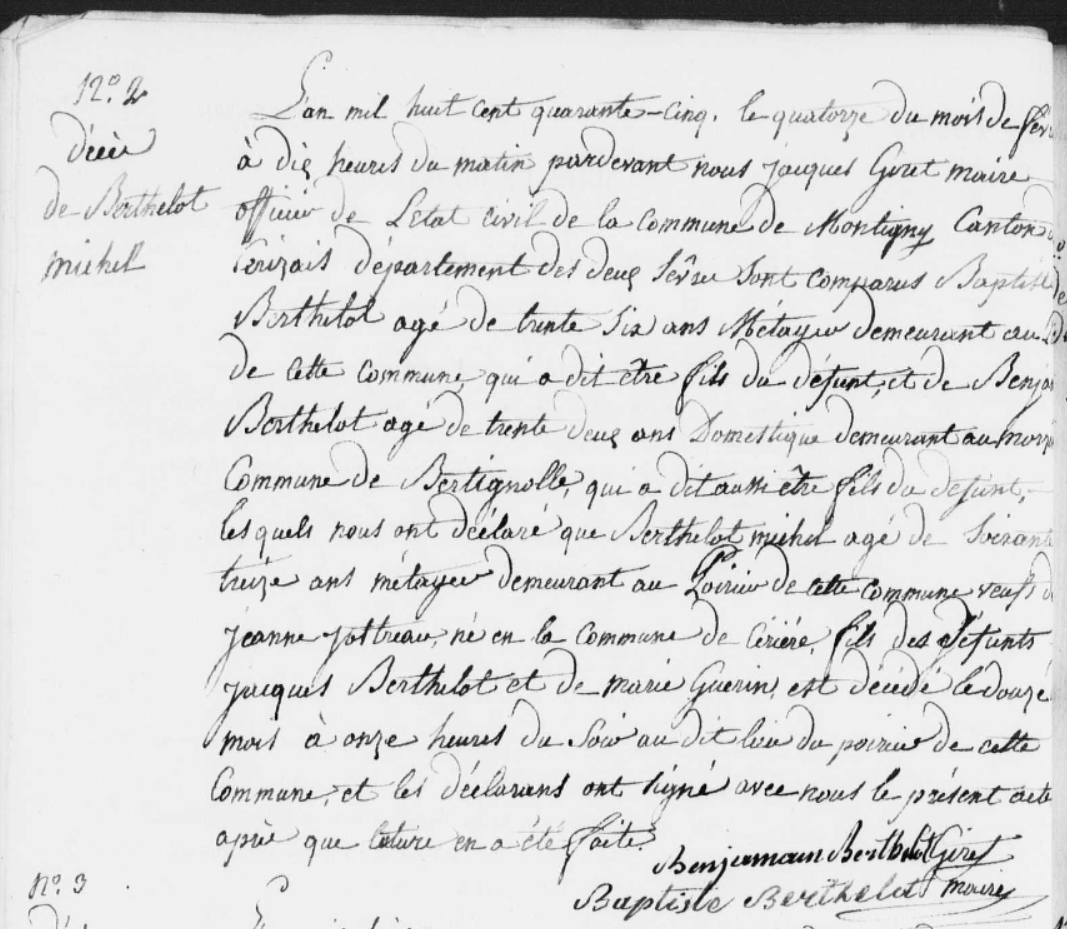 N.º 2
décès
de Berthelot
michel
L'an mil huit cent quarante-cinq. le quatorze du mois de fév
à dix heures du matin pardevant nous jacques Giret maire
officier de L'état civil de la commune de Montigny Canton
Cerizais département des deux Sèvres Sont comparus Baptiste
Berthelot agé de trente Six ans Métayer demeurant au
de cette commune, qui a dit être fils du défunt, et de Benja
Berthelot agé de trente deux ans Domestique demeurant au
Commune de Bertignolle, qui a dit aussi être fils du défunt,
lesquels nous ont déclaré que Berthelot michel agé de Soixante
treize ans métayer demeurant au Poirier de cette commune veuf d
jeanne jottreau, né en la commune de Cirière, fils des défunts
jacques Berthelot et de marie Guerin, est décédé le douze
mois à onze heures du Soir au dit lieu du poirier de cette
Commune, et les déclarans ont signé avec nous le présent acte
après que lecture en a été faite.
Benjamain Berthelot Giret
Baptiste Berthelot maire
N.º 3